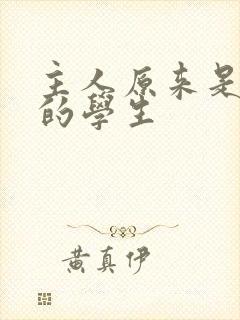 主人原来是
的學生
黄真伊